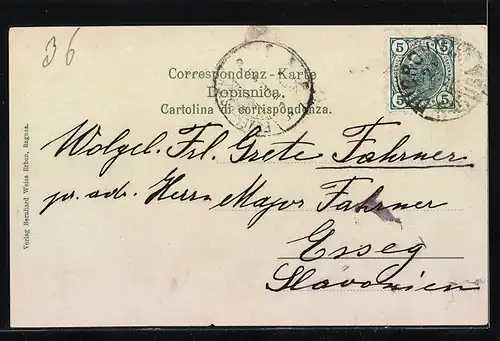 36
5 5
5 5
Correspondenz-Karte
Dopisnica.
Cartolina di corrispondenza.
Wolgel. Frl. Grete Fahrner
pr. adr. Herrn Major Fahrner
Esseg
Slavonien
Verlag Bernhard Weiss Erben, Ragusa.